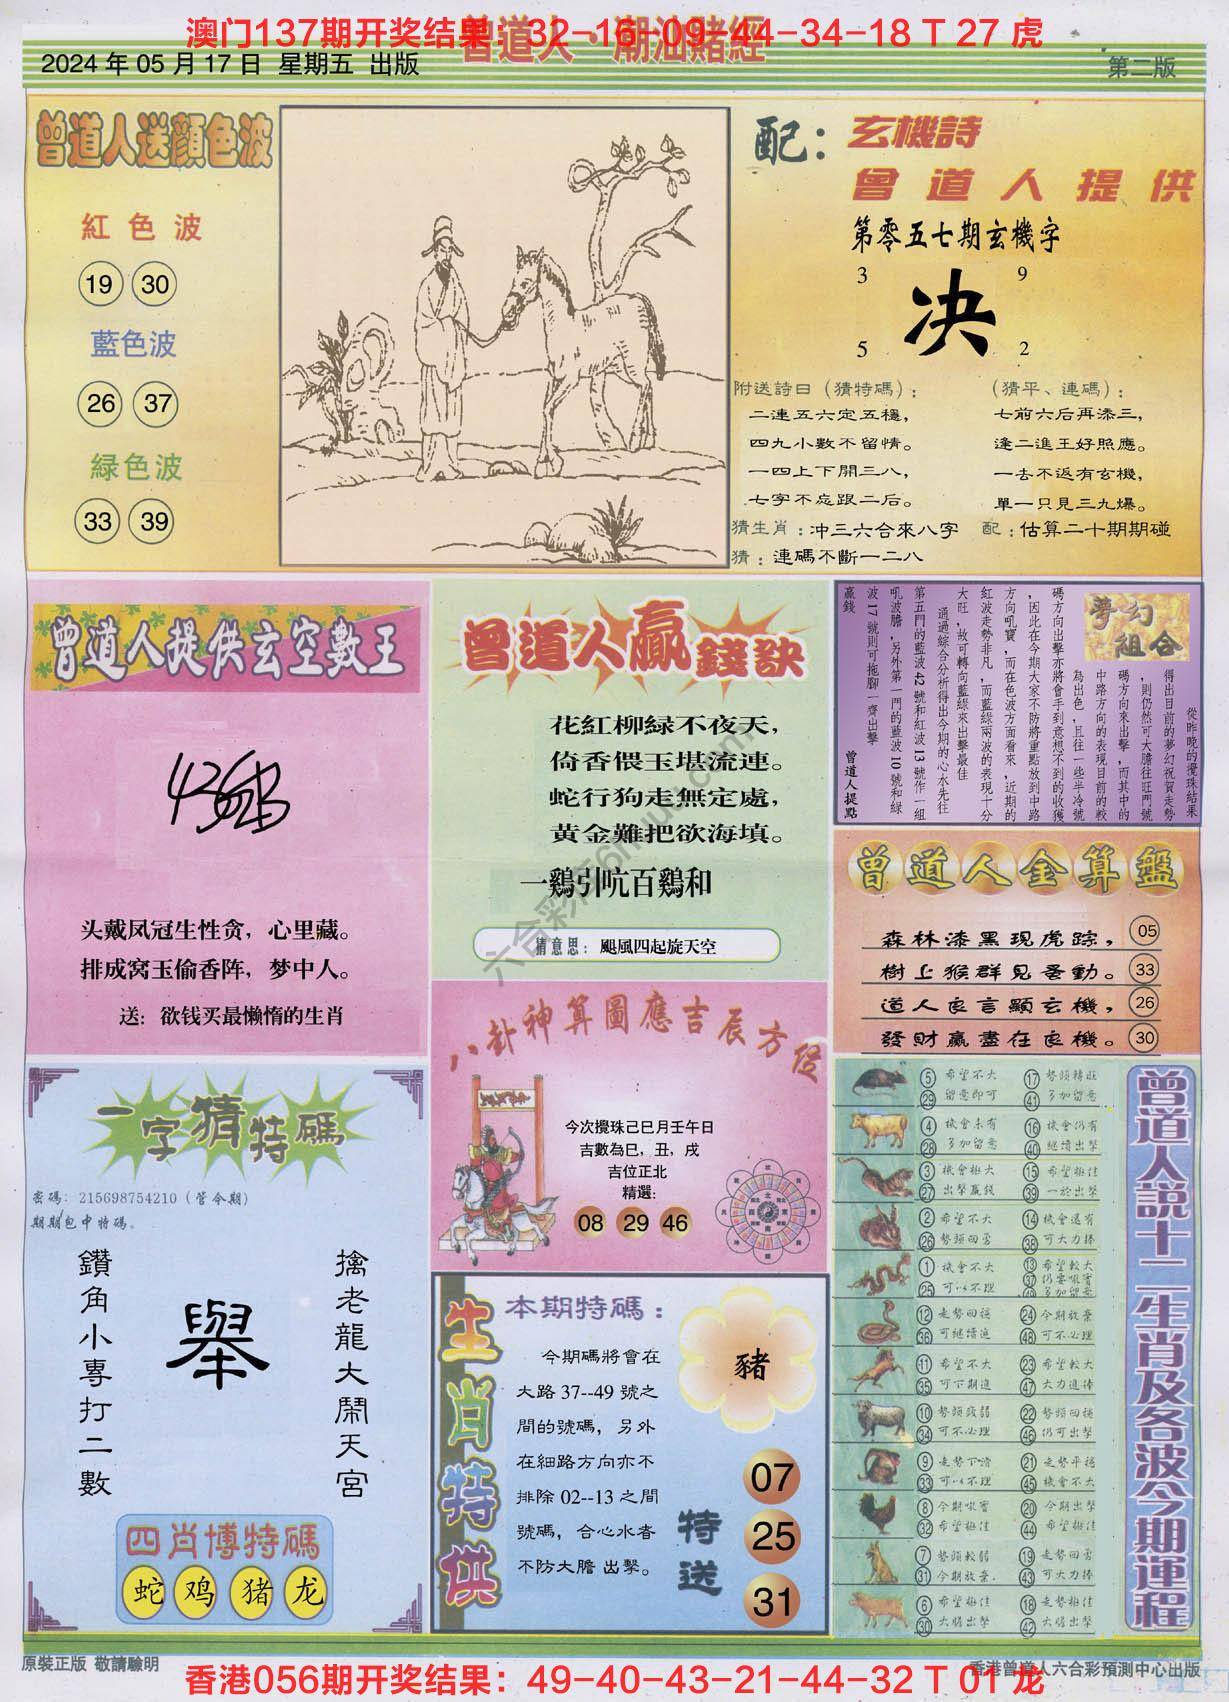 澳门137期开奖结果：32-16-09-44-34-18 T 27 虎
曾道人·潮汕賭經
2024 年 05 月 17 日 星期五 出版
第二版
曾道人送顏色波
紅色波
19 30
藍色波
26 37
緑色波
33 39
配：玄機詩
曾道人提供
第零五七期玄機字
3 9
决
5 2
附送詩曰（猜特碼）：
二連五六定五穩，
四九小數不留情。
一四上下開三八，
七字不忘跟二后。
（猜平、連碼）：
七前六后再添三，
逢二進王好照應。
一去不返有玄機，
單一只見三九爆。
猜生肖：冲三六合來八字
配：估算二十期期碰
猜：連碼不斷一二八
曾道人提供玄空數王
头戴凤冠生性贪，心里藏。
排成窝玉偷香阵，梦中人。
送：欲钱买最懒惰的生肖
曾道人贏錢訣
花紅柳緑不夜天，
倚香偎玉堪流連。
蛇行狗走無定處，
黃金難把欲海填。
一鷄引吭百鷄和
猜意思：颶風四起旋天空
夢幻組合
從昨晚的攪珠結果
得出目前的夢幻祝賀走勢
，則仍然可大膽往旺門號
碼方向來出擊，而其中的
中路方向的表現目前的較
為出色，且往一些半冷號
碼方向出擊亦將會手到意想不到的收獲
，因此在今期大家不防將重點放到中路
方向吼寶，而在色波方面看來，近期的
紅波走勢非凡，而藍綠兩波的表現十分
大旺，故可轉向藍綠來出擊最佳
通過綜合分析得出今期的心水先往
第五門的藍波 42 號和紅波 13 號作一組
吼波膽，另外第一門的藍波 10 號和緑
波 17 號則可拖腳一齊出擊
贏錢
曾道人提點
曾道人金算盤
森林漆黑現虎踪， 05
樹上猴群見蚤動。 33
道人良言顯玄機， 26
發財贏盡在良機。 30
八卦神算圖應吉辰方位
今次攪珠己巳月壬午日
吉數為巳，丑，戌
吉位正北
精選：
08 29 46
一字猜特碼
密碼：215698754210（管令期）
期期包中特碼。
鑽角小專打二數
舉
擒老龍大鬧天宮
四肖博特碼
蛇 鸡 猪 龙
生肖特供
本期特碼：
今期碼將會在
大路 37--49 號之
間的號碼，另外
在細路方向亦不
排除 02--13 之間
號碼，合心水者
不防大膽 出擊。
豬
特送
07
25
31
曾道人説十二生肖及各波今期運程
5 希望不大 17 勢頭轉旺
29 留意即可 41 多加留意
4 機會未有 16 機會仍有
28 多加留意 40 繼續出擊
3 機會極大 15 希望極佳
27 出擊贏錢 39 一於出擊
2 希望不大 14 機會還有
26 勢頭回勇 38 可大力捧
1 機會不大 13 希望較大
25 可以不理 37
12 走勢回穩 24 今期放棄
36 可繼續追 48 可不必理
11 希望不大 23 希望較大
35 可下期追 47 大力追捧
10 勢頭疲弱 22 勢頭回穩
34 可不必理 46 仍可出擊
9 走勢下滑 21 走勢平穩
33 可以不理 45 機會不大
8 今期吼寶 20 今期出擊
32 希望極佳 44 希望極佳
7 勢頭較弱 19 走勢回勇
31 今期放棄. 43 可大力捧
6 希望極佳 18 走勢極佳
30 大膽出擊 42 大膽出擊
原裝正版 敬請驗明
香港曾道人六合彩預測中心出版
香港056期开奖结果：49-40-43-21-44-32 T 01 龙